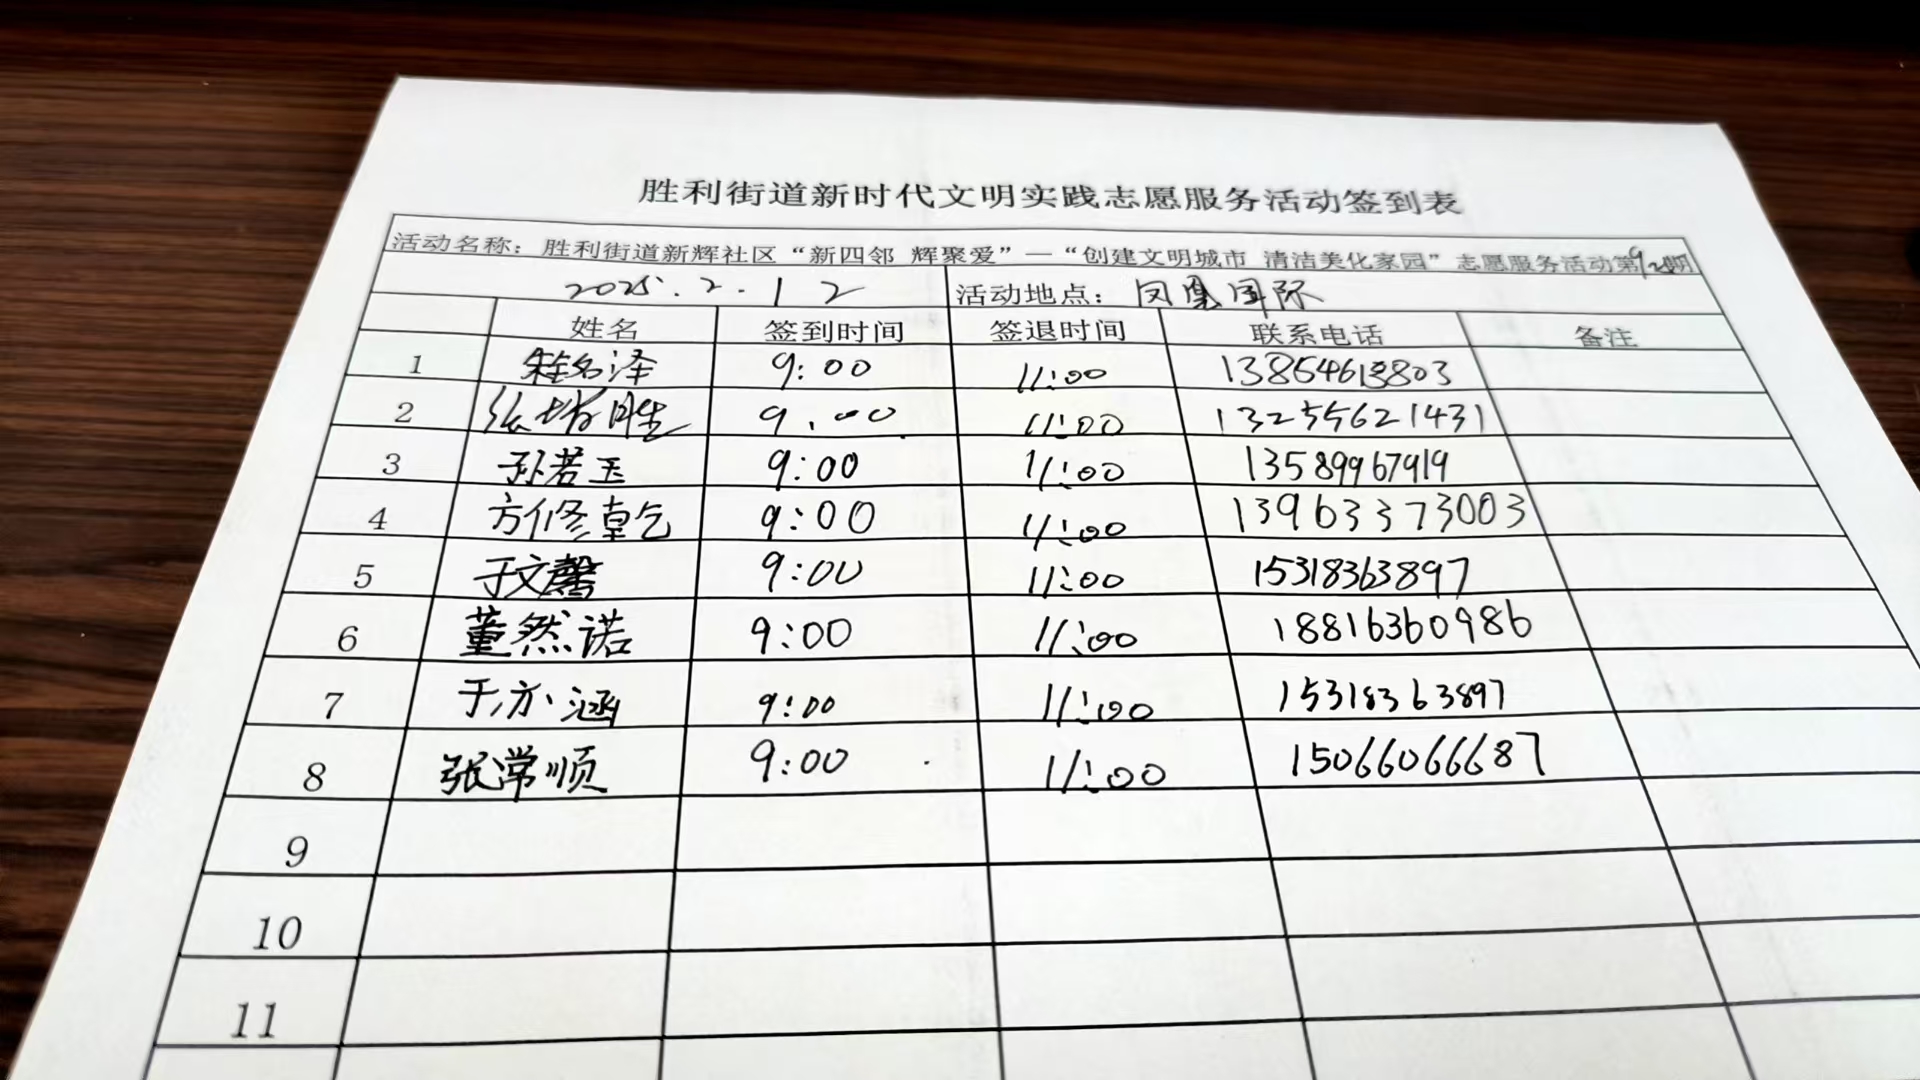 胜利街道新时代文明实践志愿服务活动签到表
活动名称：胜利街道新辉社区“新四邻 辉聚爱”—“创建文明城市 清洁美化家园”志愿服务活动第92期
2025.2.12 活动地点：凤凰国际
姓名 签到时间 签退时间 联系电话 备注
1 名泽 9:00 11:00 13854613803
2 张 9.00 11:00 13255621431
3 孙若玉 9:00 11:00 13589967919
4 方修乾 9:00 11:00 13963373003
5 于文馨 9:00 11:00 15318363897
6 董然诺 9:00 11:00 18816360986
7 于亦涵 9:00 11:00 15318363897
8 张常顺 9:00 11:00 15066066687
9
10
11